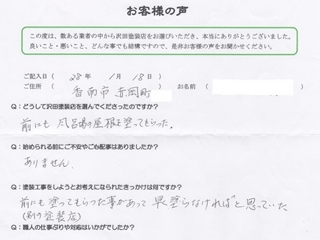 お客様の声
この度は、数ある業者の中から沢田塗装店をお選びいただき、本当にありがとうございました。
良いこと・悪いこと、どんな事でも結構ですので、是非お客様の声をお聞かせください。
ご記入日( 28 年 1月 18日)
ご住所 香南市赤岡町 お名前
Q:どうして沢田塗装店を選んでくださったのですか?
前にも 風呂場の屋根を塗ってもらった。
Q:始められる前にご不安やご心配事はありましたか?
ありません
Q:塗装工事をしようとお考えになられたきっかけは何ですか?
前にも塗ってもらった事があって 早く塗らなければと思っていた
(別の塗装店)
Q:職人の仕事ぶりや対応はいかがでしたか?